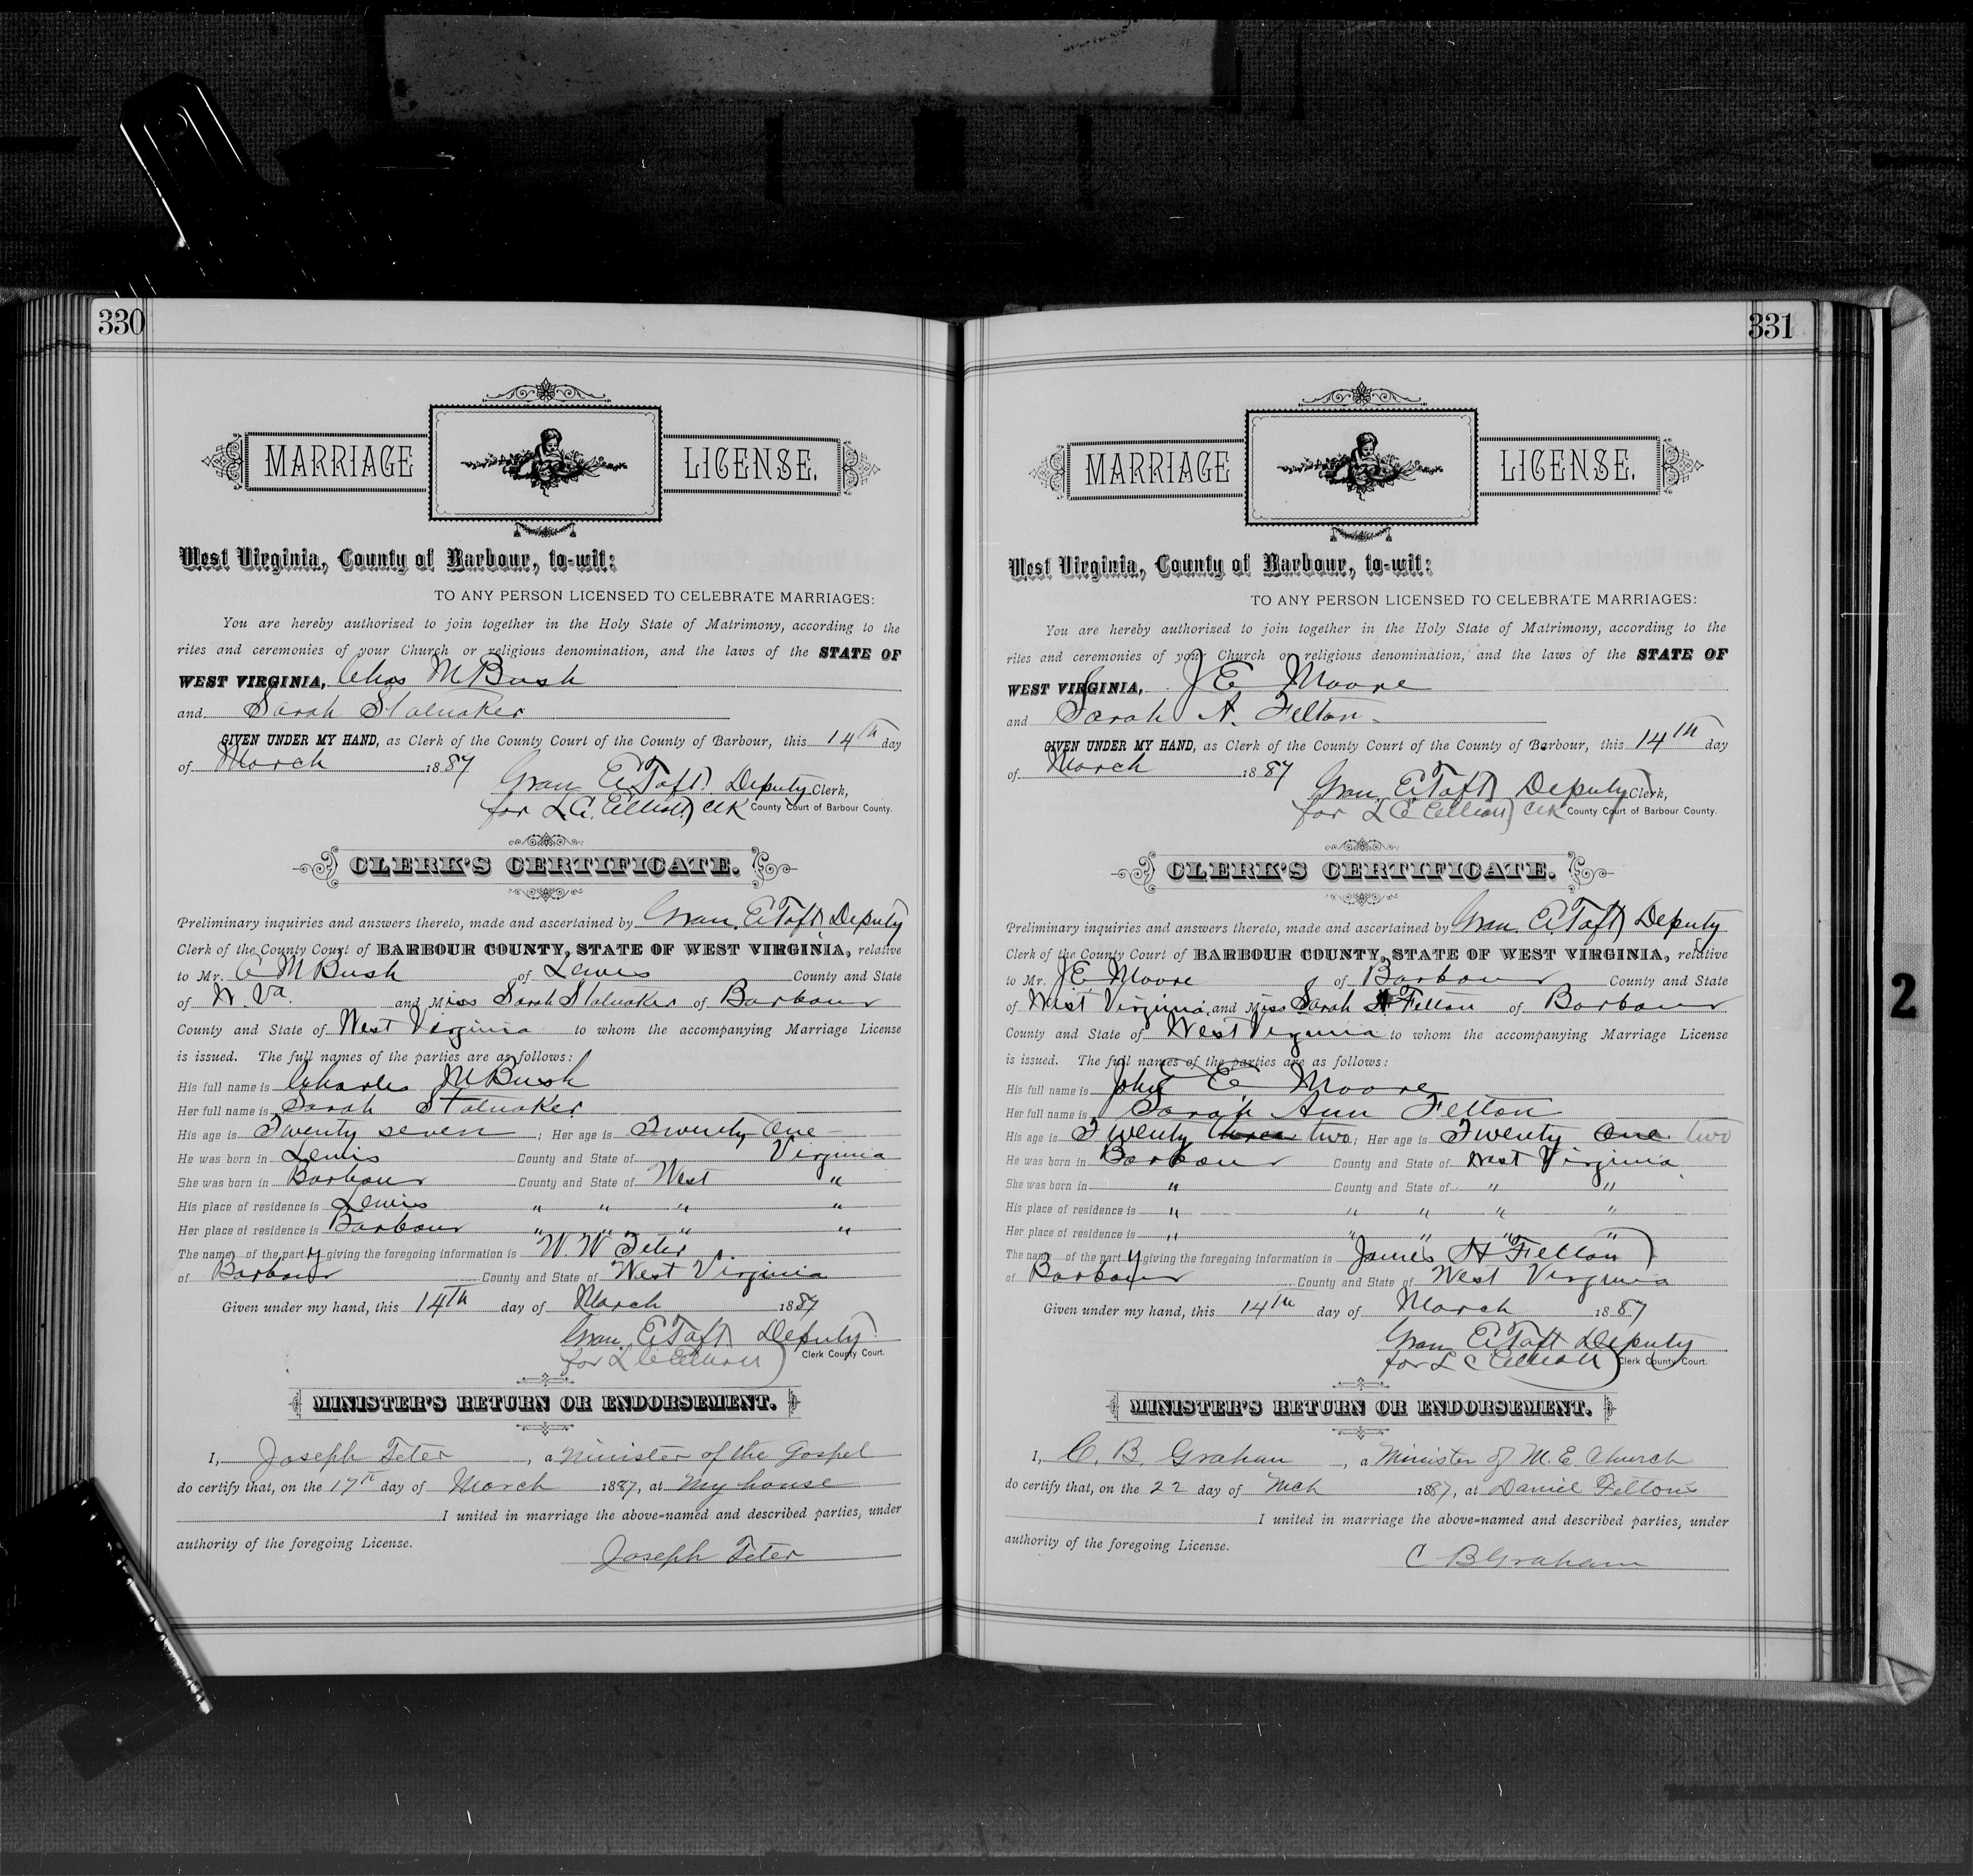 330
MARRIAGE LICENSE.
West Virginia, County of Barbour, to-wit:
TO ANY PERSON LICENSED TO CELEBRATE MARRIAGES:
You are hereby authorized to join together in the Holy State of Matrimony, according to the
rites and ceremonies of your Church or religious denomination, and the laws of the STATE OF
WEST VIRGINIA, Chas M Bush
and Sarah Stalnaker
GIVEN UNDER MY HAND, as Clerk of the County Court of the County of Barbour, this 14th day
of March 1887
Gran. E. Taft, Deputy Clerk,
for L.C. Elliott, Clk County Court of Barbour County.
CLERK'S CERTIFICATE.
Preliminary inquiries and answers thereto, made and ascertained by Gran. E. Taft, Deputy
Clerk of the County Court of BARBOUR COUNTY, STATE OF WEST VIRGINIA, relative
to Mr. C M Bush of Lewis County and State
of W. Va. and Miss Sarah Stalnaker of Barbour
County and State of West Virginia to whom the accompanying Marriage License
is issued. The full names of the parties are as follows:
His full name is Charles M Bush
Her full name is Sarah Stalnaker
His age is Twenty seven; Her age is Twenty One
He was born in Lewis County and State of Virginia
She was born in Barbour County and State of West "
His place of residence is Lewis " " " "
Her place of residence is Barbour " " " "
The name of the party giving the foregoing information is W. W Teter
of Barbour County and State of West Virginia
Given under my hand, this 14th day of March 1887
Gran. E. Taft Deputy
for L C Elliott Clerk County Court.
MINISTER'S RETURN OR ENDORSEMENT.
I, Joseph Teter, a Minister of the Gospel
do certify that, on the 17th day of March 1887, at My house
I united in marriage the above-named and described parties, under
authority of the foregoing License.
Joseph Teter
331
MARRIAGE LICENSE.
West Virginia, County of Barbour, to-wit:
TO ANY PERSON LICENSED TO CELEBRATE MARRIAGES:
You are hereby authorized to join together in the Holy State of Matrimony, according to the
rites and ceremonies of your Church or religious denomination, and the laws of the STATE OF
WEST VIRGINIA, J E Moore
and Sarah A. Felton
GIVEN UNDER MY HAND, as Clerk of the County Court of the County of Barbour, this 14th day
of March 1887
Gran. E. Taft, Deputy Clerk,
for L C Elliott, Clk County Court of Barbour County.
CLERK'S CERTIFICATE.
Preliminary inquiries and answers thereto, made and ascertained by Gran. E. Taft, Deputy
Clerk of the County Court of BARBOUR COUNTY, STATE OF WEST VIRGINIA, relative
to Mr. J E Moore of Barbour County and State
of West Virginia and Miss Sarah A Felton of Barbour
County and State of West Virginia to whom the accompanying Marriage License
is issued. The full names of the parties are as follows:
His full name is John E Moore
Her full name is Sarah Ann Felton
His age is Twenty three two; Her age is Twenty One two
He was born in Barbour County and State of West Virginia
She was born in " County and State of " "
His place of residence is " " " " "
Her place of residence is " " " " "
The name of the party giving the foregoing information is James H Felton
of Barbour County and State of West Virginia
Given under my hand, this 14th day of March 1887
Gran. E. Taft Deputy
for L C Elliott Clerk County Court.
MINISTER'S RETURN OR ENDORSEMENT.
I, C. B. Graham, a Minister of M. E. Church
do certify that, on the 22 day of Mch 1887, at Daniel Felton's
I united in marriage the above-named and described parties, under
authority of the foregoing License.
C B Graham
2